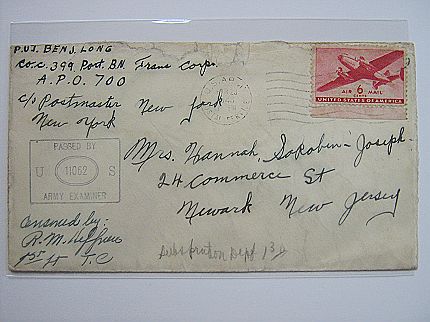 PVT. BENJ. LONG
CO. C. 399 Port. BN. Trans Corps.
A.P.O. 700
c/o Postmaster New York
New York
AIR 6 MAIL
CENTS
UNITED STATES OF AMERICA
PASSED BY
U 11062 S
ARMY EXAMINER
Mrs. Hannah, Sokobin-Joseph.
24 Commerce St
Newark New Jersey
Censored by:
R. M.
1st Lt T.C
Dept 13